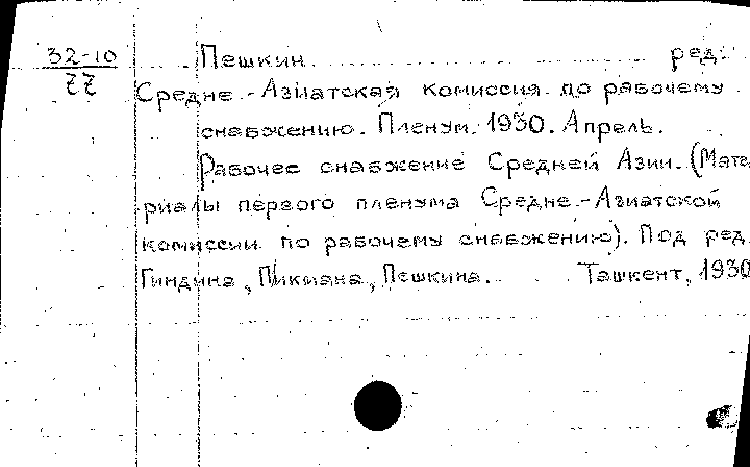 32-10 Пешкин ред.
77 Средне-Азиатская комиссия по рабочему
снабжению. Пленум. 1930. Апрель.
Рабочее снабжение Средней Азии. (Мате
риалы первого пленума Средне-Азиатской
комиссии по рабочему снабжению). Под ред.
Гиндина, Пикмана, Пешкина. Ташкент, 1930